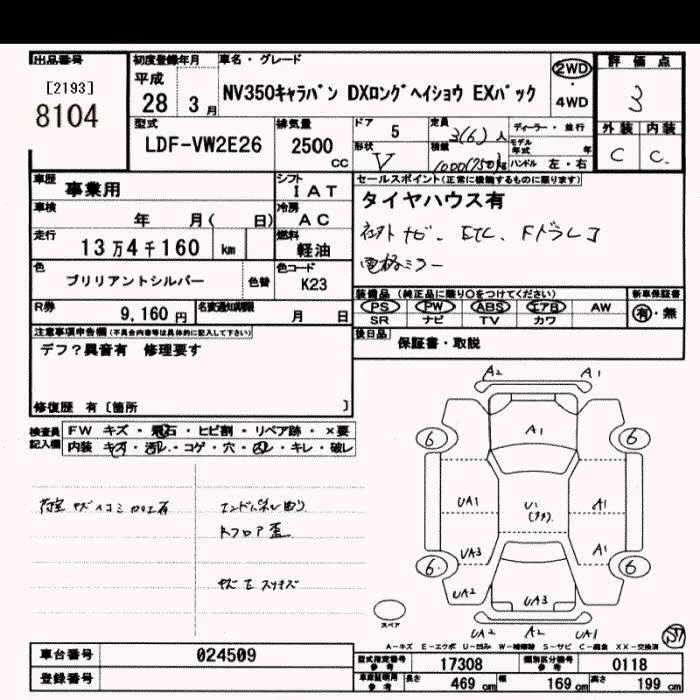 出品番号 初度登録年月 車名・グレード 評価点
[2193]
8104
平成
28 3月
NV350キャラバン DXロングヘイショウ EXパック
2WD
・
4WD
3
型式 排気量 ドア 定員 ディーラー・並行
LDF-VW2E26 2500 CC
5 3(6)人
モデル年式 年
形状 積載 ハンドル 左・右
V 1000(750)kg
外装 内装
C C
車歴 事業用
シフト IAT
セールスポイント(正常に機能するものに限ります)
タイヤハウス有
車検 年 月( 日)
冷房 AC
ナビ、ETC、ドラレコ
走行 13万4千160 km
燃料 軽油
電格ミラー
色 ブリリアントシルバー 色替
色コード K23
装備品 (純正品に限り○をつけてください) 新車保証書
PS PW ABS エアB AW
SR ナビ TV カワ
有・無
R券 9,160円
名変通知期限 月 日
後日品 保証書・取説
注意事項申告欄(不具合内容等は具体的に記入して下さい)
デフ?異音有 修理要す
修復歴 有〔箇所 〕
検査員記入欄
FW キズ・飛石・ヒビ割・リペア跡・×要
内装 キズ・汚れ・コゲ・穴・凹・キレ・破レ
荷室 キズ 凹コミ 加工有
エンドパネル曲り
フロア歪
A2 A1
6 A1 6
UA1 U1 A1
UA3 A1
6 6
UA2 UA3
UA2 A2 UA1
スペア
A-キズ E-エクボ U-凹み W-補修跡 S-サビ C-腐食 XX-交換済
車台番号 024509
登録番号
型式指定番号 参考 17308 類別区分番号 参考 0118
車庫証明用 参考 長さ 469 cm 幅 169 cm 高さ 199 cm